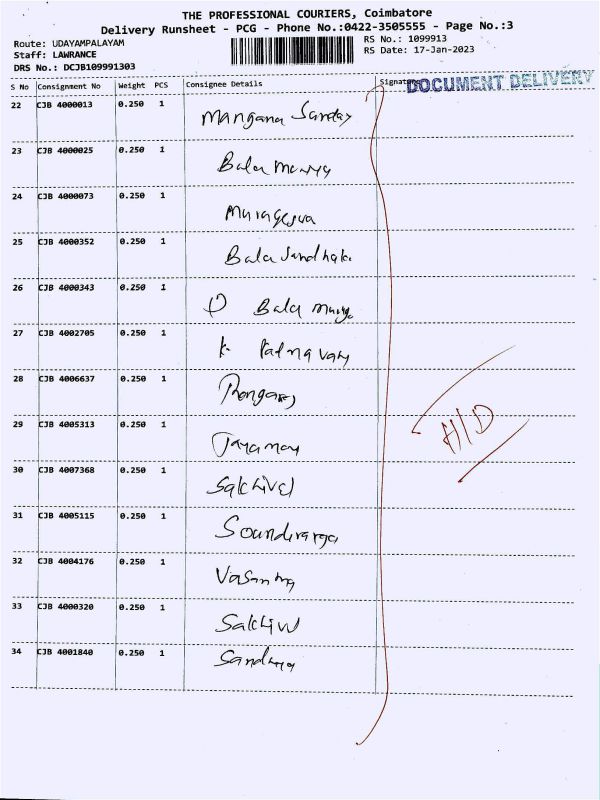 THE PROFESSIONAL COURIERS, Coimbatore
Delivery Runsheet - PCG - Phone No.:0422-3505555 - Page No.:3
Route: UDAYAMPALAYAM
RS No.: 1099913
Staff: LAWRANCE
RS Date: 17-Jan-2023
DRS No.: DCJB109991303
DOCUMENT DELIVERY
S No Consignment No Weight PCS Consignee Details Signature
22 CJB 4000013 0.250 1
23 CJB 4000025 0.250 1 Bala
24 CJB 4000073 0.250 1
25 CJB 4000352 0.250 1 Bala
26 CJB 4000343 0.250 1 Bala
27 CJB 4002705 0.250 1 K.
28 CJB 4006637 0.250 1
29 CJB 4005313 0.250 1
H/D
30 CJB 4007368 0.250 1 Sakthivel
31 CJB 4005115 0.250 1
32 CJB 4004176 0.250 1
33 CJB 4000320 0.250 1
34 CJB 4001840 0.250 1